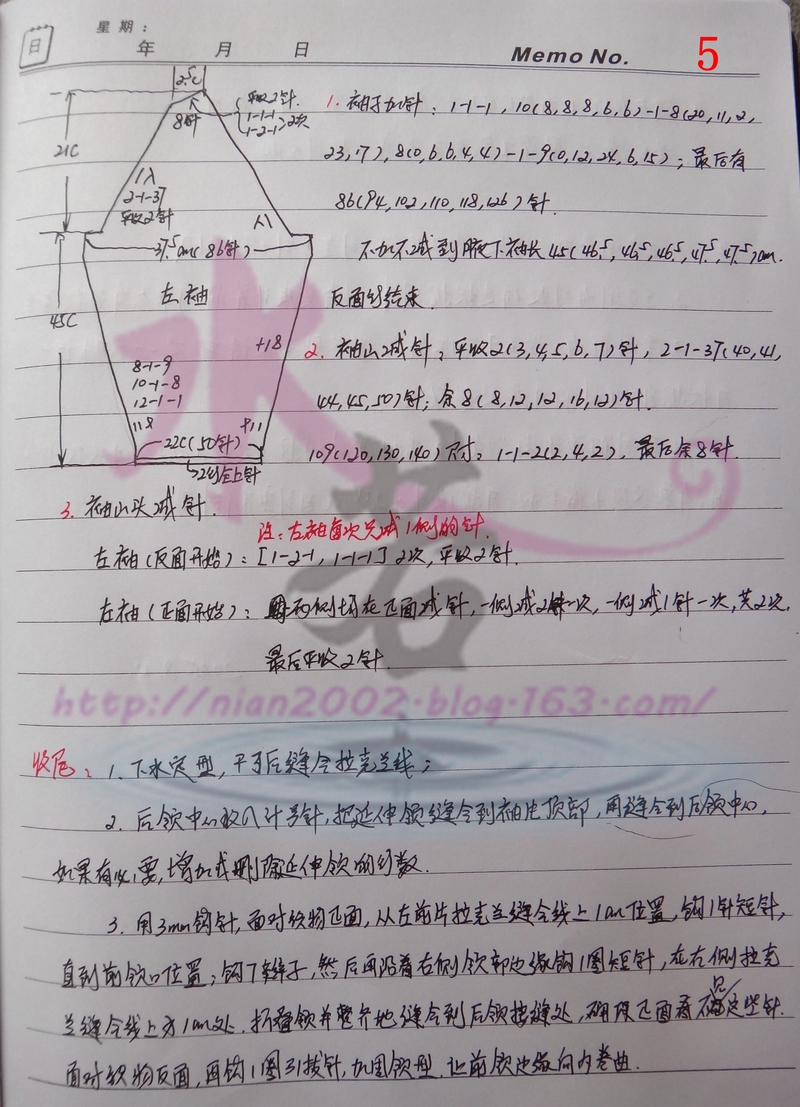 星期：
日 年 月 日 Memo No. 5
2.5C
平收2针.
1-1-1
1-2-1 }2次
8针
21C
2-1-37
平收2针
37.5cm(86针)
左袖
45C
+18
8-1-9
10-1-8
12-1-1
22C(50针)
1. 袖子加针：1-1-1，10(8,8,8,6,6)-1-8(20,11,2,
23,17)，8(0,6,6,4,4)-1-9(0,12,24,6,15)；最后有
86(94,102,110,118,126)针.
不加不减到腋下袖长45(46.5,46.5,46.5,47.5,47.5)cm.
反面行结束.
2. 袖山减针：平收2(3,4,5,6,7)针，2-1-37(40,41,
44,45,50)针；余8(8,12,12,16,12)针.
109(120,130,140)尺寸：1-1-2(2,4,2)，最后余8针.
3. 袖山头减针.
注：左袖每次只减1侧的针.
左袖(反面开始)：[1-2-1，1-1-1]2次，平收2针.
左袖(正面开始)：两侧均在正面减针，一侧减2针一次，一侧减1针一次，共2次.
最后平收2针.
http://nian2002.blog.163.com/
水若
收尾：1. 下水定型，干了后缝合拉克兰线；
2. 后领中心收入计号针，把延伸领缝合到袖片顶部，再缝合到后领中心，
如果有必要，增加或删除延伸领的行数.
3. 用3mm钩针，面对织物正面，从左前片拉克兰缝合线上1cm位置，钩1针短针，
直到前领口位置；钩7辫子，然后再沿着右侧领部边缘钩1圈短针，在右侧拉克
兰缝合线上方1cm处. 折叠领并整齐地缝合到后领接缝处，确保正面看不见这些针.
面对织物反面，再钩1圈引拔针，加固领型. 让前领边缘向内卷曲.